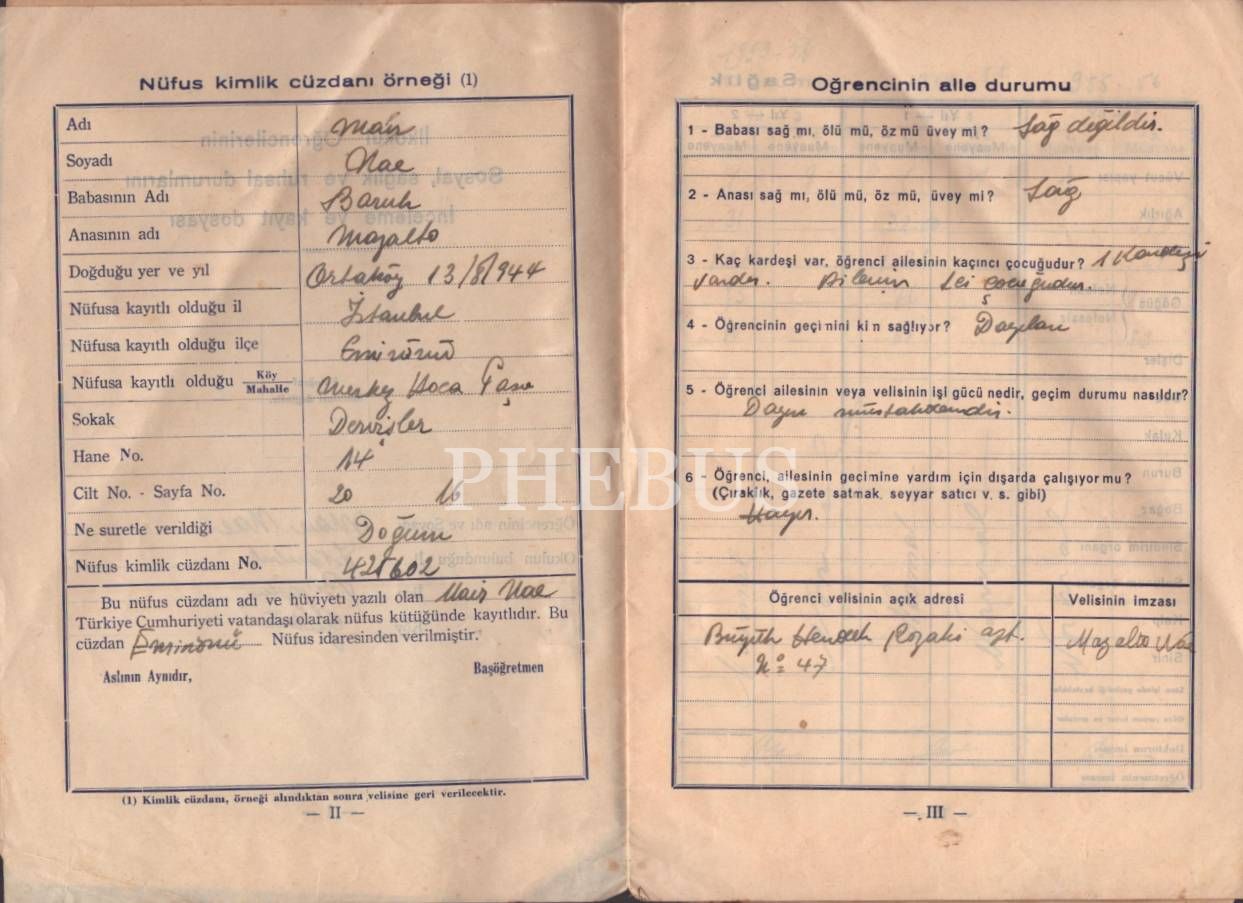 Nüfus kimlik cüzdanı örneği (1)
Adı
Soyadı Nae
Babasının Adı Baruh
Anasının adı Mazalto
Doğduğu yer ve yıl Ortaköy 13/8/944
Nüfusa kayıtlı olduğu il İstanbul
Nüfusa kayıtlı olduğu ilçe Eminönü
Nüfusa kayıtlı olduğu Köy Mahalle Merkez Hoca Paşa
Sokak Dervişler
Hane No. 14
Cilt No. - Sayfa No. 20 16
Ne suretle verildiği Doğum
Nüfus kimlik cüzdanı No. 421602
Bu nüfus cüzdanı adı ve hüviyeti yazılı olan Nae
Türkiye Cumhuriyeti vatandaşı olarak nüfus kütüğünde kayıtlıdır. Bu
cüzdan Eminönü Nüfus idaresinden verilmiştir.
Aslının Aynıdır, Başöğretmen
(1) Kimlik cüzdanı, örneği alındıktan sonra velisine geri verilecektir.
— II —
Öğrencinin aile durumu
1 - Babası sağ mı, ölü mü, öz mü üvey mi? Sağ değildir.
2 - Anası sağ mı, ölü mü, öz mü, üvey mi? Sağ
3 - Kaç kardeşi var, öğrenci ailesinin kaçıncı çocuğudur? 1 Kardeşi
vardır. Ailenin çocuğudur.
4 - Öğrencinin geçimini kim sağlıyor? Dayıları
5 - Öğrenci ailesinin veya velisinin işi gücü nedir, geçim durumu nasıldır?
Dayısı müstahdemdir.
6 - Öğrenci, ailesinin geçimine yardım için dışarda çalışıyor mu?
(Çıraklık, gazete satmak, seyyar satıcı v. s. gibi)
Hayır.
Öğrenci velisinin açık adresi Velisinin imzası
Büyük Hendek apt. Mazalto Nae
No 47
— III —
PHEBUS